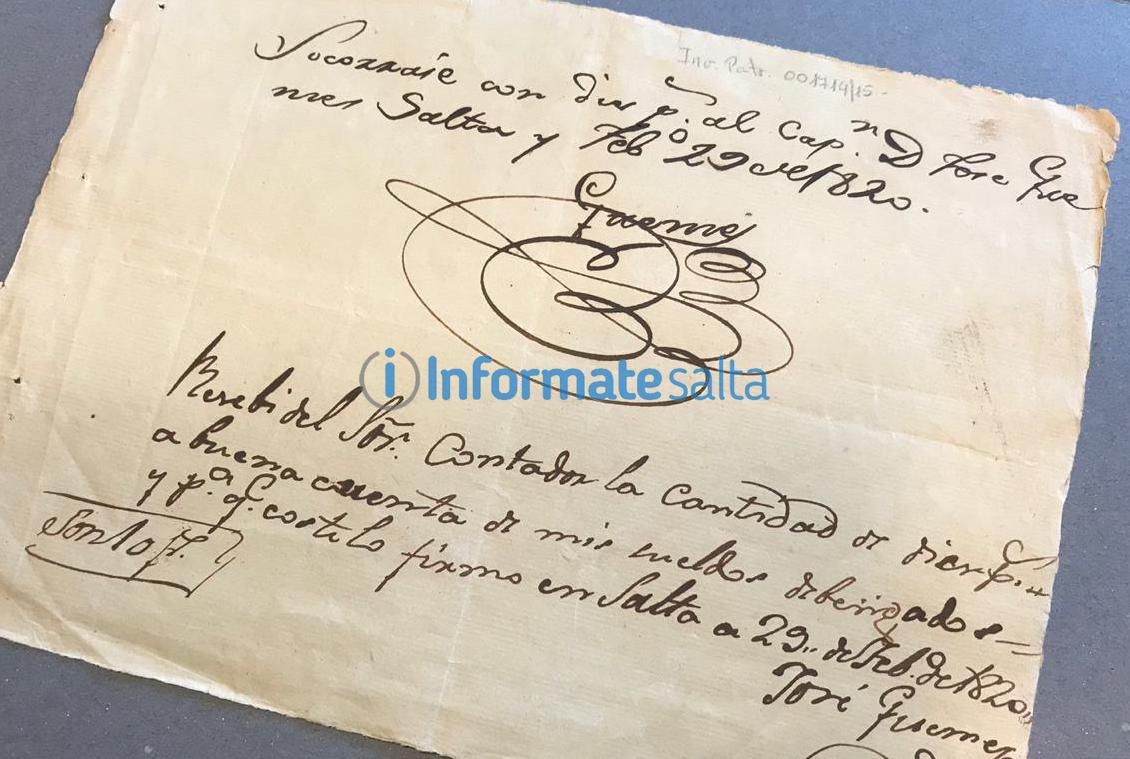 Inv. Patr. 001714/15-
Socorrase con dies p.s al Cap.n D Jose Gue
mes Salta y Feb.o 29 de 1820.
Guemes
informatesalta
Resebi del Sōr. Contador la cantidad de dies p.s
a buena cuenta de mis sueldos debengados
y p.a q.e coste lo firmo en Salta a 29.. de Feb. de 1820
José Guemes
Son 10 p.s